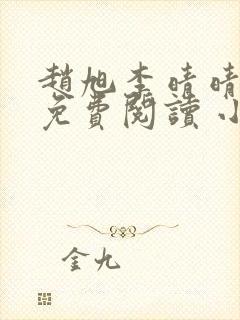 趙旭李晴晴
免費閱讀小
金九